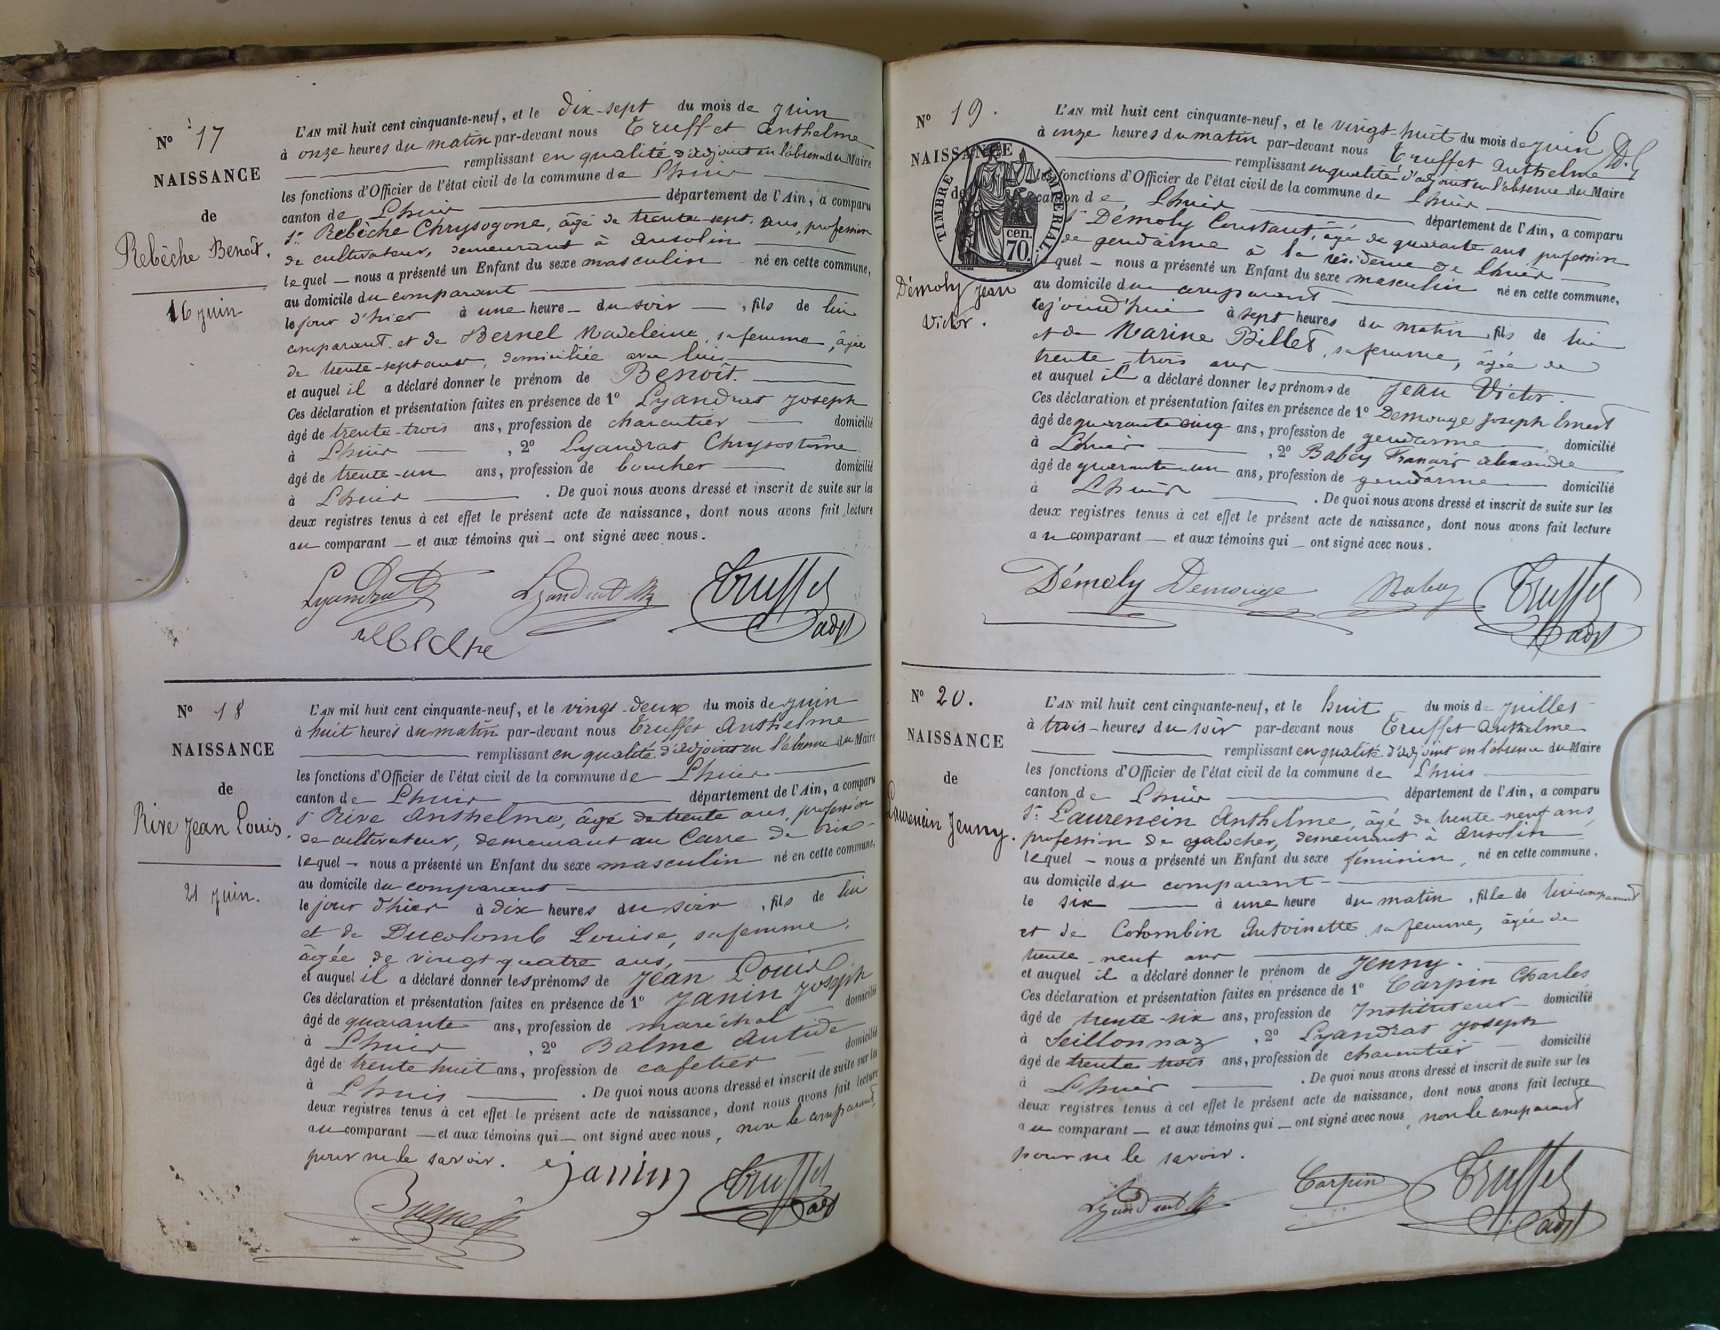 N° 17
NAISSANCE
de
Rebêche Benoit.
16 juin
L'AN mil huit cent cinquante-neuf, et le dix-sept du mois de juin
à onze heures du matin par-devant nous Truffet Anthelme
remplissant en qualité d'adjoint en l'absence du Maire
les fonctions d'Officier de l'état civil de la commune de Lhuis
canton de Lhuis département de l'Ain, a comparu
Sr Rebêche Chrysogone, âgé de trente-sept ans, profession
de cultivateur, demeurant à Ansolin
lequel nous a présenté un Enfant du sexe masculin né en cette commune,
au domicile du comparant
le jour d'hier à une heure du soir, fils de lui
comparant et de Bernel Madeleine, sa femme, âgée
de trente-sept ans, domiciliée avec lui
et auquel il a déclaré donner le prénom de Benoît.
Ces déclaration et présentation faites en présence de 1° Lyandrat Joseph
âgé de trente-trois ans, profession de charcutier domicilié
à Lhuis, 2° Lyandrat Chrysostôme
âgé de trente-un ans, profession de boucher domicilié
à Lhuis. De quoi nous avons dressé et inscrit de suite sur les
deux registres tenus à cet effet le présent acte de naissance, dont nous avons fait lecture
au comparant et aux témoins qui ont signé avec nous.
Lyandrat Lyandrat Truffet
adjt
rebeche
N° 18
NAISSANCE
de
Rive Jean Louis.
21 juin.
L'AN mil huit cent cinquante-neuf, et le vingt-deux du mois de juin
à huit heures du matin par-devant nous Truffet Anthelme
remplissant en qualité d'adjoint en l'absence du Maire
les fonctions d'Officier de l'état civil de la commune de Lhuis
canton de Lhuis département de l'Ain, a comparu
Sr Rive Anthelme, âgé de trente ans, profession
de cultivateur, demeurant au Carre de
lequel nous a présenté un Enfant du sexe masculin né en cette commune,
au domicile du comparant
le jour d'hier à dix heures du soir, fils de lui
et de Ducolomb Louise, sa femme,
âgée de vingt quatre ans,
et auquel il a déclaré donner les prénoms de Jean Louis
Ces déclaration et présentation faites en présence de 1° Janin Joseph
âgé de quarante ans, profession de maréchal domicilié
à Lhuis, 2° Balme Antide
âgé de trente huit ans, profession de cafetier domicilié
à Lhuis. De quoi nous avons dressé et inscrit de suite sur les
deux registres tenus à cet effet le présent acte de naissance, dont nous avons fait lecture
au comparant et aux témoins qui ont signé avec nous, non le comparant
pour ne le savoir. Janin Truffet
adjt
N° 19.
NAISSANCE
de
TIMBRE IMPÉRIAL
cen.
70.
Démoly Jean
Victor.
6
L'AN mil huit cent cinquante-neuf, et le vingt-huit du mois de juin
à onze heures du matin par-devant nous Truffet Anthelme
remplissant en qualité d'adjoint en l'absence du Maire
les fonctions d'Officier de l'état civil de la commune de Lhuis
canton de Lhuis département de l'Ain, a comparu
Sr Démoly Constant, âgé de quarante ans, profession
de gendarme à la résidence de Lhuis
lequel nous a présenté un Enfant du sexe masculin né en cette commune,
au domicile du comparant
cejourd'hui à sept heures du matin, fils de lui
et de Marine Billet, sa femme, âgée de
trente-trois ans
et auquel il a déclaré donner les prénoms de Jean Victor.
Ces déclaration et présentation faites en présence de 1° Demouge Joseph
âgé de quarante cinq ans, profession de gendarme domicilié
à Lhuis, 2° Babey François Alexandre
âgé de quarante-un ans, profession de gendarme domicilié
à Lhuis. De quoi nous avons dressé et inscrit de suite sur les
deux registres tenus à cet effet le présent acte de naissance, dont nous avons fait lecture
au comparant et aux témoins qui ont signé avec nous.
Démoly Demouge Babey Truffet
adjt
N° 20.
NAISSANCE
de
Laurencin Jenny.
L'AN mil huit cent cinquante-neuf, et le huit du mois de juillet
à trois heures du soir par-devant nous Truffet Anthelme
remplissant en qualité d'adjoint en l'absence du Maire
les fonctions d'Officier de l'état civil de la commune de Lhuis
canton de Lhuis département de l'Ain, a comparu
Sr Laurencin Anthelme, âgé de trente-neuf ans,
profession de galocher, demeurant à Ansolin
lequel nous a présenté un Enfant du sexe féminin, né en cette commune,
au domicile du comparant
le six à une heure du matin, fille de lui comparant
et de Colombin Antoinette sa femme, âgée de
trente-neuf ans
et auquel il a déclaré donner le prénom de Jenny.
Ces déclaration et présentation faites en présence de 1° Carpin Charles
âgé de trente-six ans, profession de Instituteur domicilié
à Seillonnaz, 2° Lyandrat Joseph
âgé de trente-trois ans, profession de charcutier domicilié
à Lhuis. De quoi nous avons dressé et inscrit de suite sur les
deux registres tenus à cet effet le présent acte de naissance, dont nous avons fait lecture
au comparant et aux témoins qui ont signé avec nous, non le comparant
pour ne le savoir.
Lyandrat Carpin Truffet
adjt